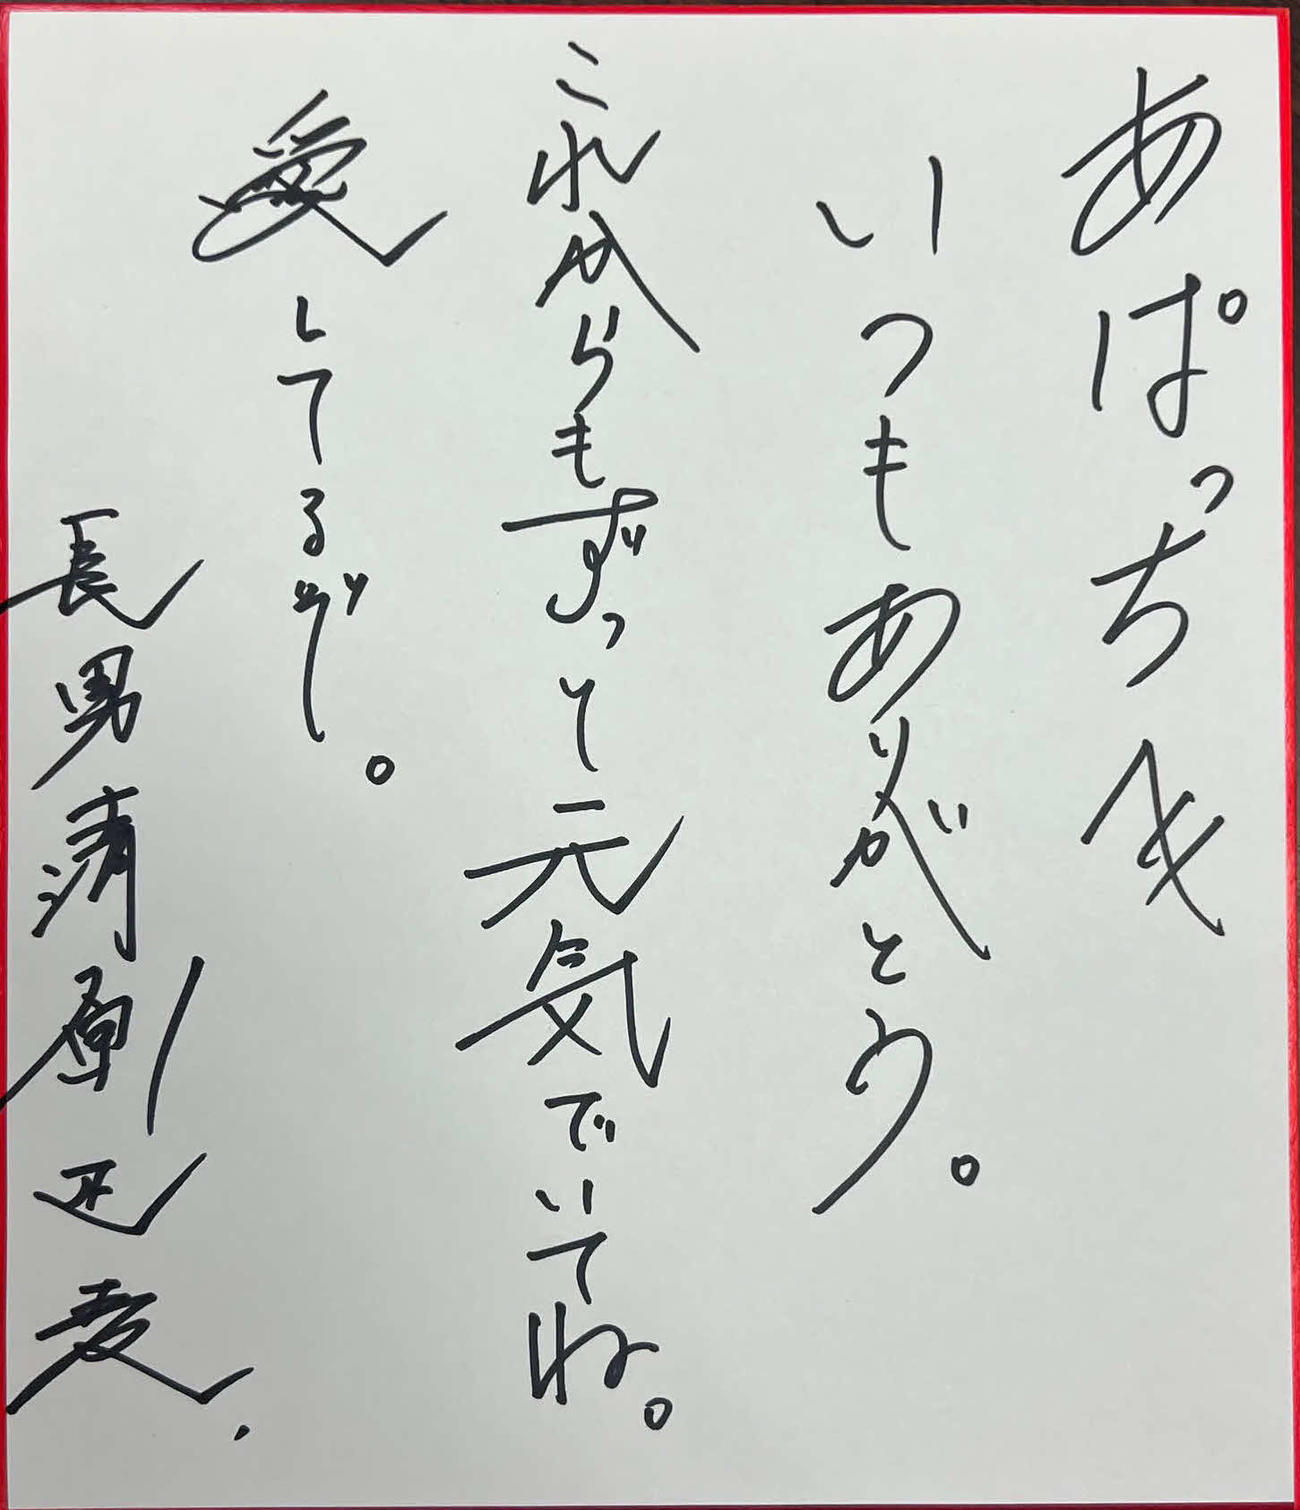 あぱっちへ
いつもありがとう。
これからもずっと元気でいてね。
愛してるぞ。
長男清原